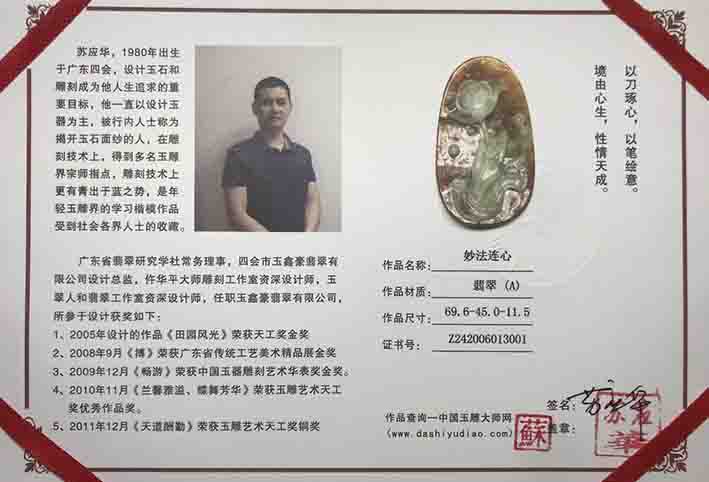 苏应华，1980年出生
于广东四会，设计玉石和
雕刻成为他人生追求的重
要目标，他一直以设计玉
器为主，被行内人士称为
揭开玉石面纱的人，在雕
刻技术上，得到多名玉雕
界宗师指点，雕刻技术上
更有青出于蓝之势，是年
轻玉雕界的学习楷模作品
受到社会各界人士的收藏。
广东省翡翠研究学社常务理事，四会市玉鑫豪翡翠有
限公司设计总监，仵华平大师雕刻工作室资深设计师，玉
翠人和翡翠工作室资深设计师，任职玉鑫豪翡翠有限公司，
所参于设计获奖如下：
1、2005年设计的作品《田园风光》荣获天工奖金奖
2、2008年9月《博》荣获广东省传统工艺美术精品展金奖
3、2009年12月《畅游》荣获中国玉器雕刻艺术华表奖金奖。
4、2010年11月《兰馨雅溢、蝶舞芳华》荣获玉雕艺术天工
奖优秀作品奖。
5、2011年12月《天道酬勤》荣获玉雕艺术天工奖铜奖
以刀琢心，以笔绘意。
境由心生，性情天成。
作品名称：妙法连心
作品材质：翡翠（A）
作品尺寸：69.6-45.0-11.5
证书号：Z242006013001
签名：苏应华
盖章：
作品查询一中国玉雕大师网
(www.dashiyudiao.com)
蘇